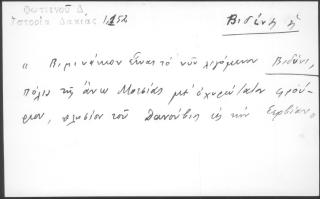 Φωτεινοῦ Δ.
Ἱστορία Δακίας 1,252
Βιδύνη ἡ
" Βιμινάκιον εἶναι τὸ νῦν λεγόμενον Βιδύνι,
πόλις τῆς ἄνω Μοισίας μὲ ὀχυρώτατον φρού-
ριον, πλησίον τοῦ Δανούβις εἰς τὴν Σερβίαν.